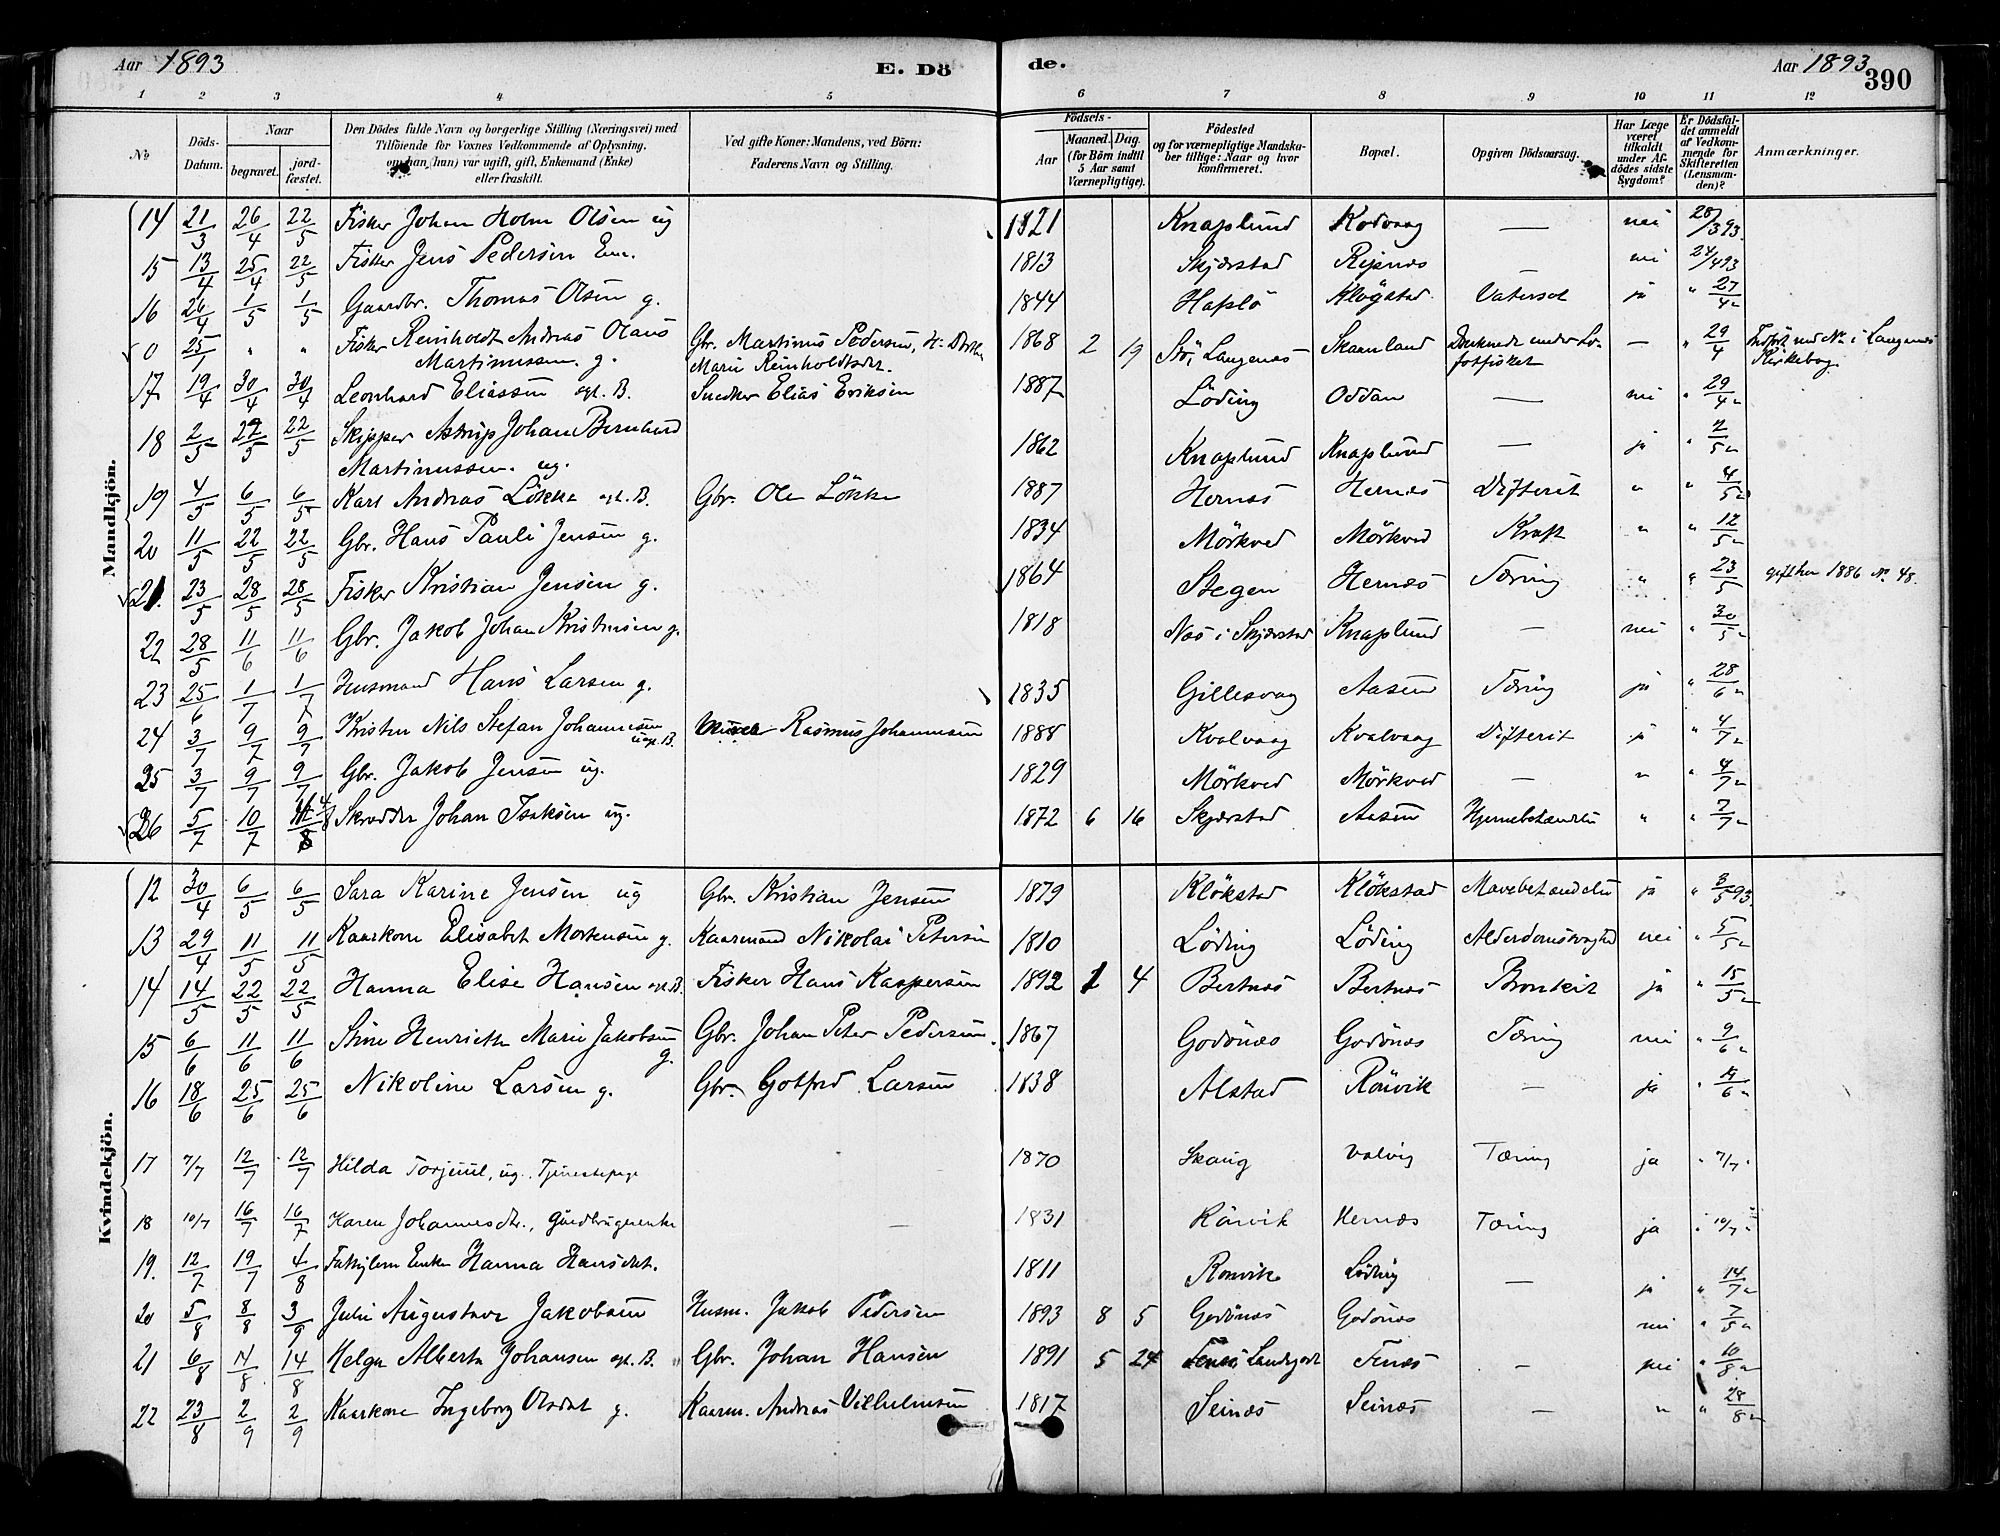 Aar 1893 E. Dö de. Aar 1893 390
1 2 3 4 5 6 7 8 9 10 11 12
No Döds-Datum. Naar begravet. jordfæstet. Den Dödes fulde Navn og borgerlige Stilling (Næringsvei) med Tilföiende for Voxnes Vedkommende af Oplysning, om han (hun) var ugift, gift, Enkemand (Enke) eller fraskilt. Ved gifte Koner: Mandens, ved Börn: Faderens Navn og Stilling. Födsels- Aar Maaned. Dag. (for Börn indtil 5 Aar samt Værnepligtige). Födested og for værnepligtige Mandskaber tillige: Naar og hvor konfirmeret. Bopæl. Opgiven Dödsaarsag. Har Læge været tilkaldt under Afdödes sidste Sygdom? Er Dödsfaldet anmeldt af Vedkommende for Skifteretten (Lensmanden)? Anmærkninger.
Mandkjön.
14 21/3 26/4 22/5 Fisker Johan Holm Olsen ug 1821 Knaplund Kodvaag — nei 28/3 93.
15 13/4 25/4 22/5 Fisker Jens Pedersen Em. 1813 Skjærstad Ripnæs — nei 24/4 93
16 26/4 1/5 1/5 Gaardbr. Thomas Olsen g. 1844 Hafslö Klögstad Vatersot ja " 27/4 "
0 25/1 " " Fisker Reinholdt Andreas Olaus Martinussen g. Gbr. Martinus Pedersen, H: Dorthea Marie Reinholtsdtr. 1868 2 19 Stö, Langenæs Skaanland Druknede under Lofotfisket — " 29/4 Indfört med No i Langenæs Kirkebog
17 19/4 30/4 30/4 Leonhard Eliassen egt. B. Snedker Elias Eriksen 1887 Löding Oddan — nei " 29/4 "
18 2/5 22/5 22/5 Skipper Astrup Johan Bernhard Martinussen. ug. 1862 Knaplund Knaplund — ja " 2/5 "
19 4/5 6/5 6/5 Karl Andreas Lökke egt. B. Gbr. Ole Lökke 1887 Hernæs Hernæs Difterit " " 4/5 "
20 11/5 22/5 22/5 Gbr. Hans Pauli Jensen g. 1834 Mörkved Mörkved Kræft " " 12/5 "
21. 23/5 28/5 28/5 Fisker Kristian Jensen g. 1864 Stegen Hernæs Tæring " " 23/5 gift her 1886 No. 48.
22 28/5 11/6 11/6 Gbr. Jakob Johan Kristensen g. 1818 Næs i Skjærstad Knaplund — nei " 30/5 "
23 25/6 1/7 1/7 Husmand Hans Larsen g. 1835 Gillesvag Aasen Tæring ja " 28/6 "
24 3/7 9/7 9/7 Kristen Nils Stefan Johannesen uegt. B. Rasmus Johannesen 1888 Kvalvaag Kvalvaag Difterit ja " 4/7 "
25 3/7 9/7 9/7 Gbr. Jakob Jensen ug. 1829 Mörkved Mörkved — " " 4/7 "
26 5/7 10/7 14/8 Skrædder Johan Isaksen ug. 1872 6 16 Skjærstad Aasen Hjernebetændelse " " 7/7 "
Kvindekjön.
12 30/4 6/5 6/5 Sara Karine Jensen ug Gbr. Kristian Jensen 1879 Klökstad Klökstad Mavebetændelse ja " 3/5 93.
13 29/4 11/5 11/5 Kaarkone Elisabet Mortensen g. Kaarmand Nikolai Petersen 1810 Löding Löding Alderdomssvaghed nei " 5/5 "
14 14/5 22/5 22/5 Hanna Elise Hansen egt. B. Fisker Hans Kaspersen 1892 1 4 Bertnæs Bertnæs Bronkit ja " 15/5 "
15 6/6 11/6 11/6 Stine Henriette Marie Jakobsen g. Gbr. Johan Peter Pedersen. 1867 Godönæs Godönæs Tæring nei " 9/6 "
16 18/6 25/6 25/6 Nikoline Larsen g. Gbr. Gotfred Larsen 1838 Alstad Rönvik — ja " 19/6 "
17 7/7 12/7 12/7 Hilda Torjuul, ug. Tjenestepige 1870 Skaug Valvig Tæring ja " 7/7 "
18 10/7 16/7 16/7 Karen Johannesdtr., Gaardbrugerenke — 1831 Rönvik Hernæs Tæring ja " 10/7 "
19. 12/7 19/7 4/8 Fattiglem Enke Hanna Hansdat. 1811 Rönvik Löding — ja " 14/7 "
20 5/8 8/8 3/9 Julie Augustave Jakobsen Husm. Jakob Pedersen 1893 8 5 Godönæs Godönæs nei " 7/5 "
21 6/8 14/8 14/8 Helga Alberta Johansen egt. B. Gbr. Johan Hansen 1891 5 24 Fenes, Landegode Fenæs — nei " 10/8 "
22 23/8 2/9 2/9 Kaarkone Ingeborg Olsdat g. Kaarm. Andreas Vilhelmsen 1817 Seinæs Seinæs — " " 28/8 "